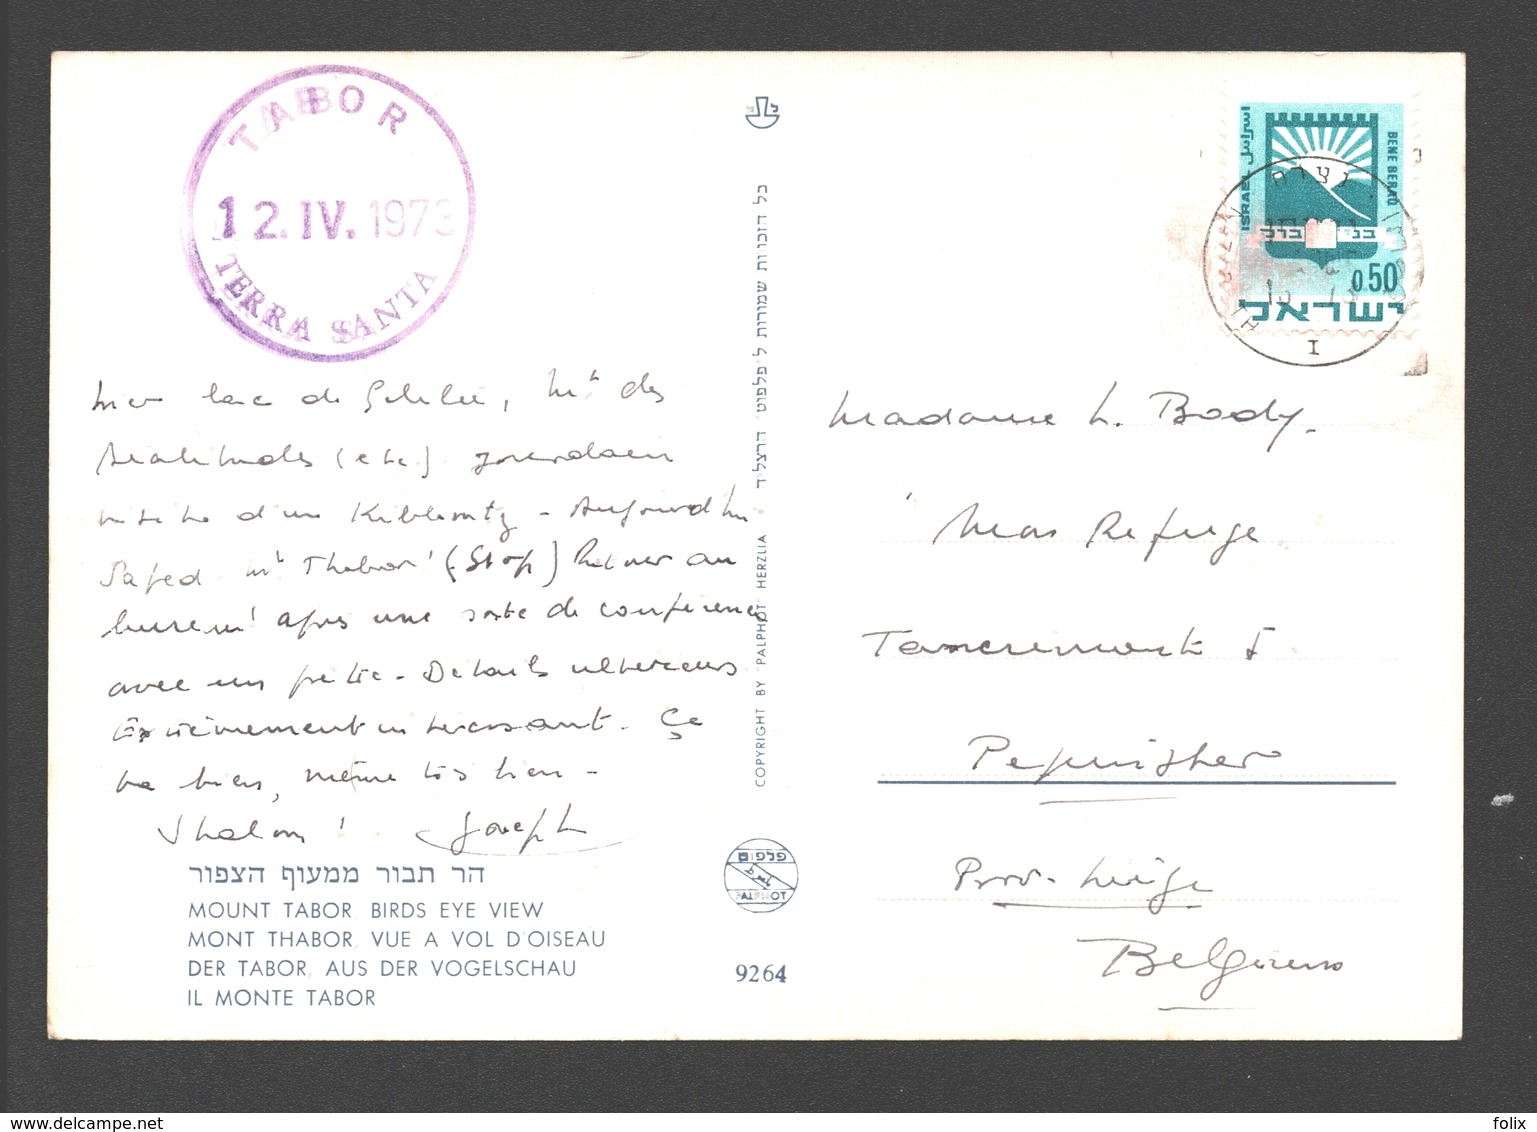 TABOR
12. IV. 1973
TERRA SANTA
Hier lac de Galilée, Mt des
Béatitudes (etc) Jourdain
visite d'un Kibboutz - Aujourd'hui
Safed Mt Thabor (Stop) Retour au
après une sorte de conférence
avec un prêtre - Détails ultérieurs
Extrêmement intéressant - Ça
va bien, même très bien -
Shalom! Joseph
הר תבור ממעוף הצפור
MOUNT TABOR, BIRDS EYE VIEW
MONT THABOR, VUE A VOL D'OISEAU
DER TABOR, AUS DER VOGELSCHAU
IL MONTE TABOR
כל הזכויות שמורות ל"פלפוט" הרצליה
COPYRIGHT BY "PALPHOT" HERZLIA
פלפוט
9264
ISRAEL اسرائيل
BENE BERAQ
בני ברק
0.50
ישראל
נצרת
I
Madame L. Body.
Mon Refuge
Tancremont
Pepinster
Prov. Liège
Belgium
folix